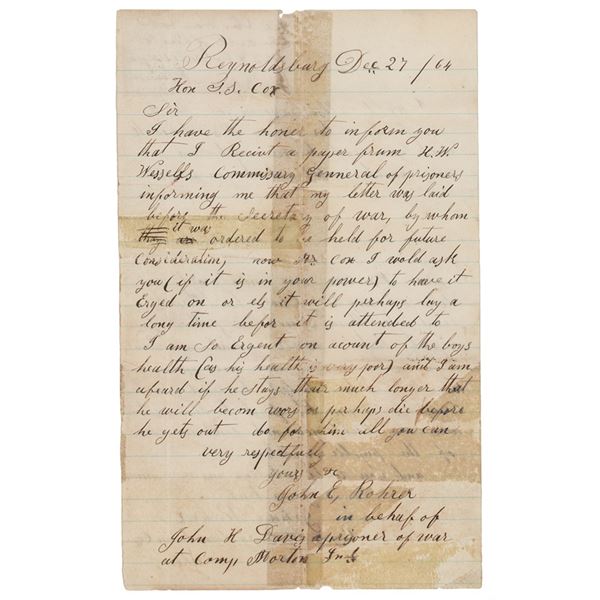 Reynoldsburg Dec 27 /64
Hon S.S. Cox
Sir
I have the honer to inform you
that I Recievt a paper frum H.W.
Wessells Commisary Genneral of prisoners
informing me that my letter was laid
before the Secretay of war, by whom
it was
ordered to be held for future
Consideration, now Mr Cox I wold ask
you (if it is in your power) to have it
Erged on or els it will perhaps lay a
long time befor it is attended to
I am so Ergent on acount of the boys
health (as his health is very poor) and I am
afeard if he stays thair much longer that
he will becom wors or perhaps die before
he gets out do for him all you can
very respectfully
yours &c
John E, Rohrer
in behaf of
John H Davis a prisoner of war
at Camp Morton Ind